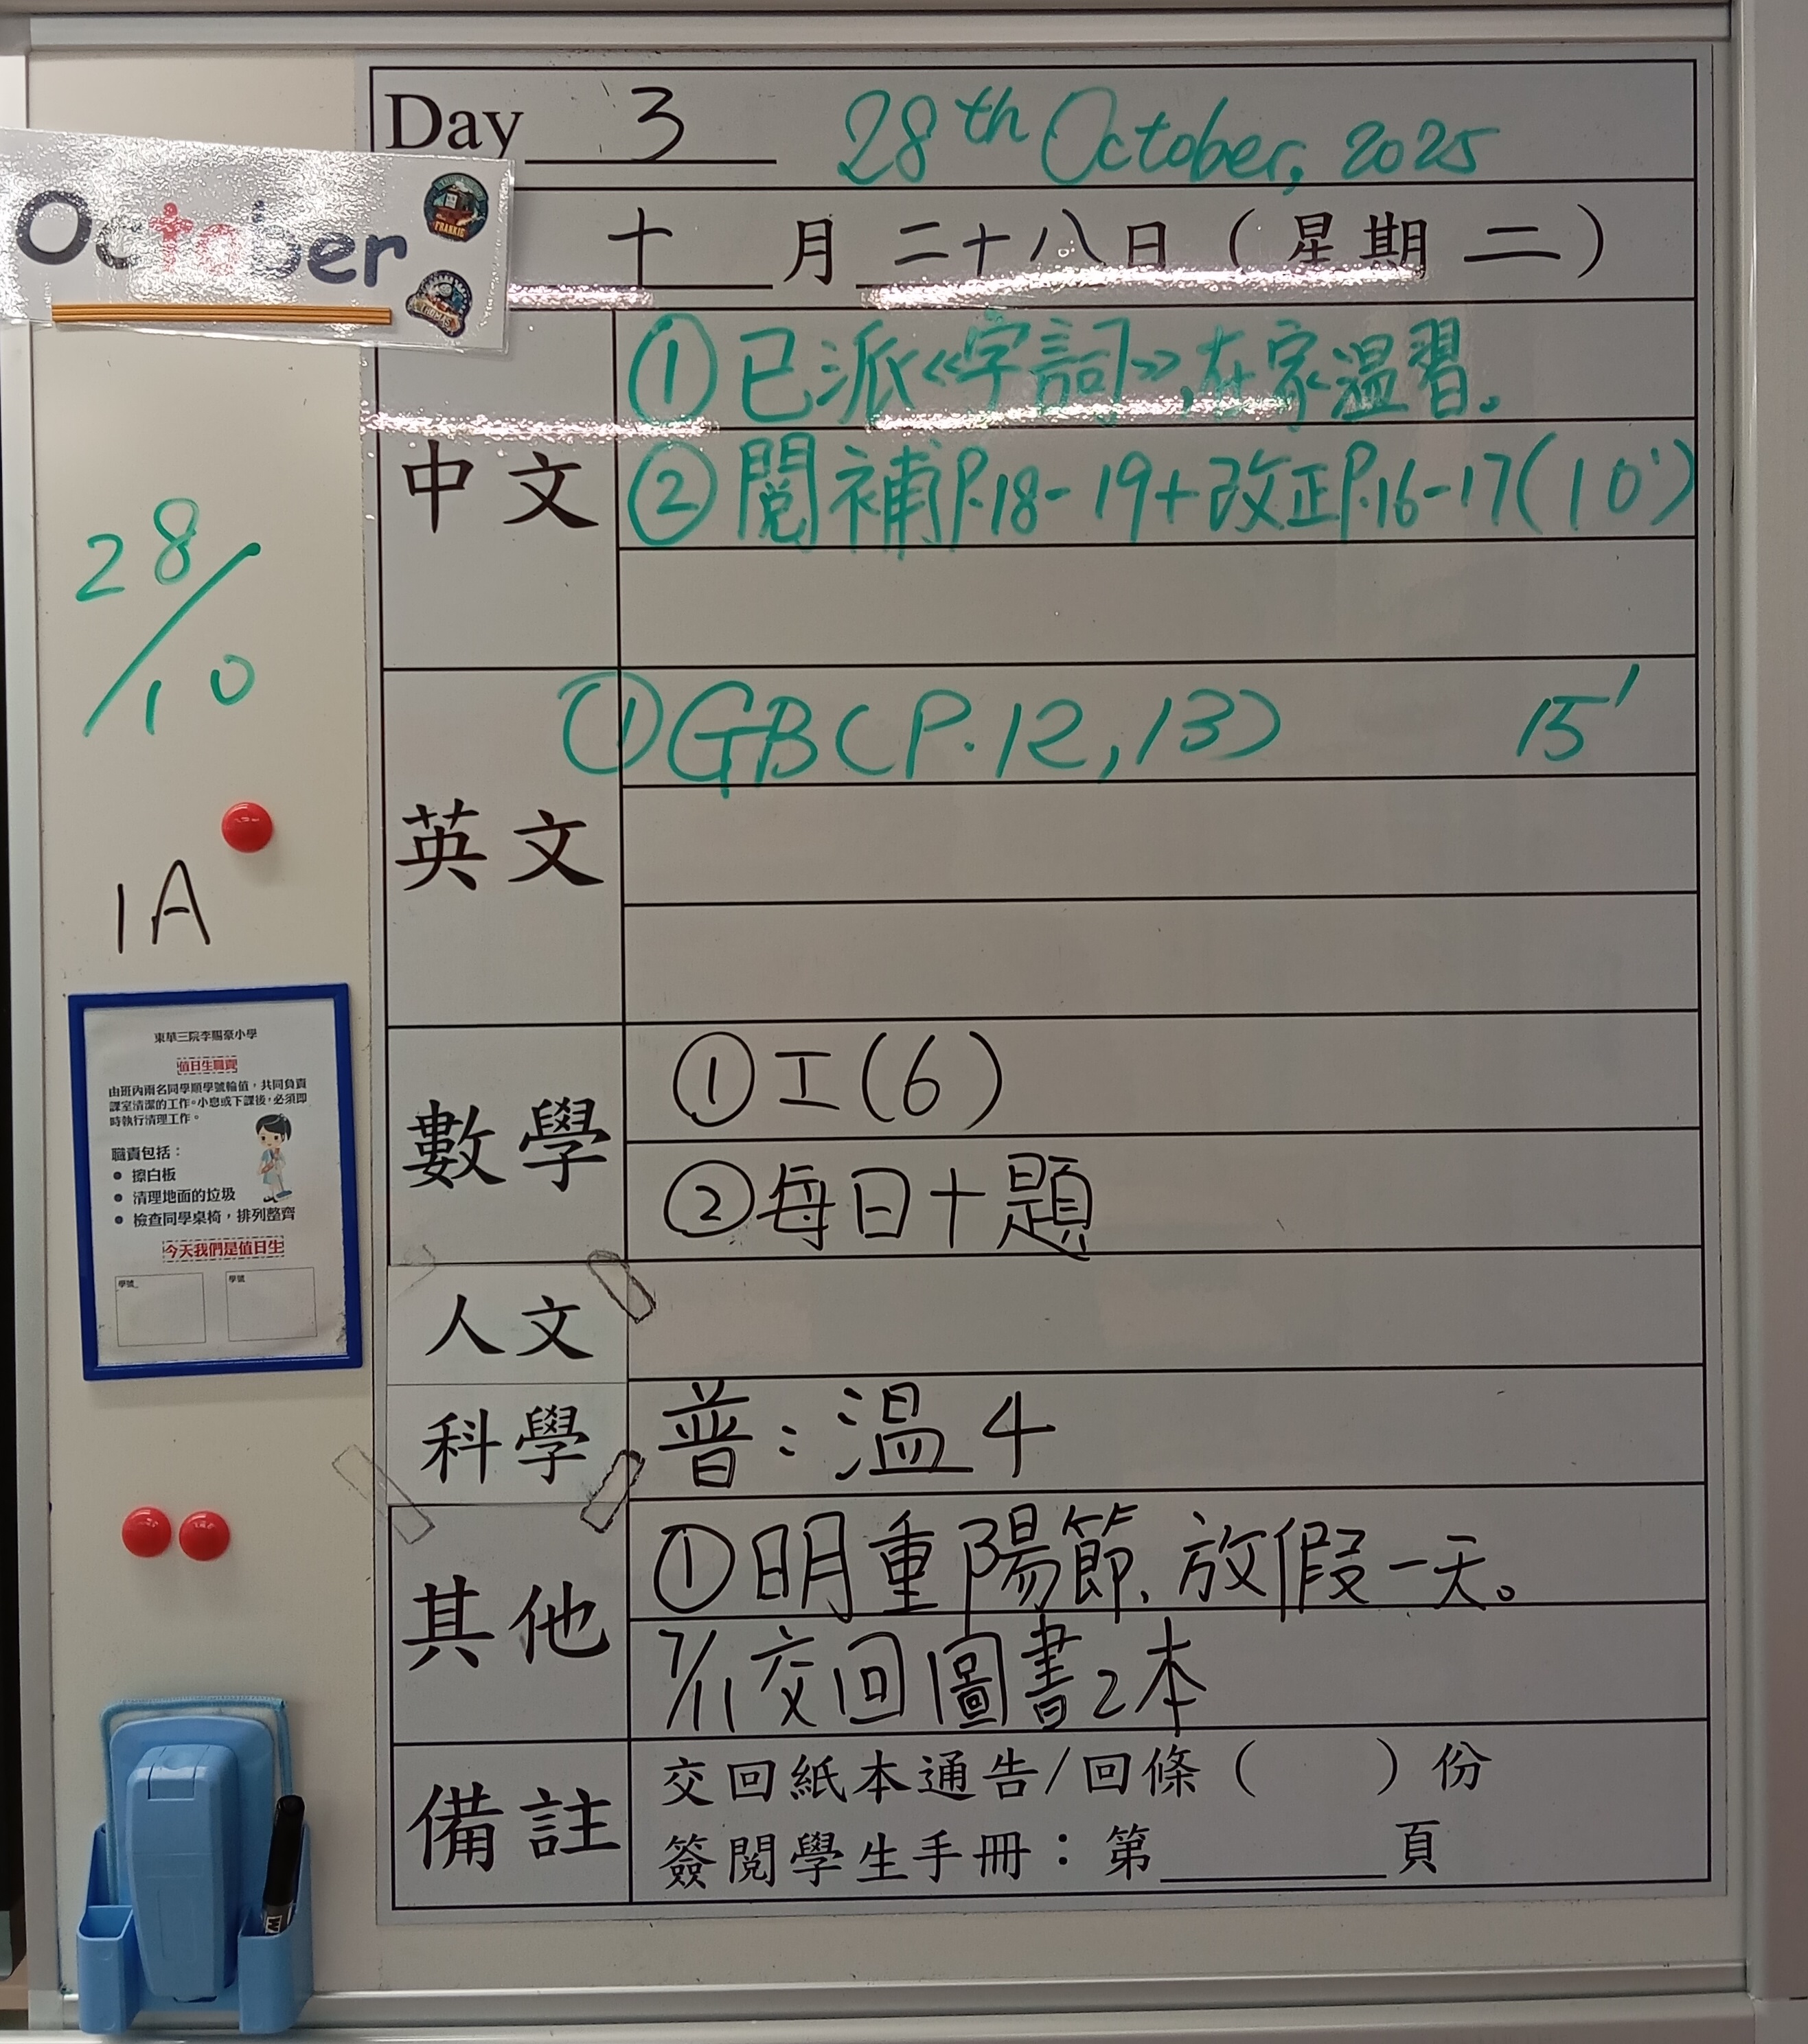 Day 3 28th October, 2025
October
FRANKIE
THOMAS
十 月 二十八日 ( 星期 二 )
中文
① 已派《字詞》,在家溫習。
② 閱補P.18-19+改正P.16-17(10')
28/10
英文
① GB(P.12,13) 15'
1A
數學
① 工(6)
② 每日十題
人文
科學
普:溫4
其他
① 明重陽節,放假一天。
7/11交回圖書2本
備註
交回紙本通告/回條( )份
簽閱學生手冊:第______頁
東華三院李賜豪小學
值日生職責
由班內兩名同學順學號輪值,共同負責
課室清潔的工作。小息或下課後,必須即
時執行清理工作。
職責包括:
• 擦白板
• 清理地面的垃圾
• 檢查同學桌椅,排列整齊
今天我們是值日生
學號 學號